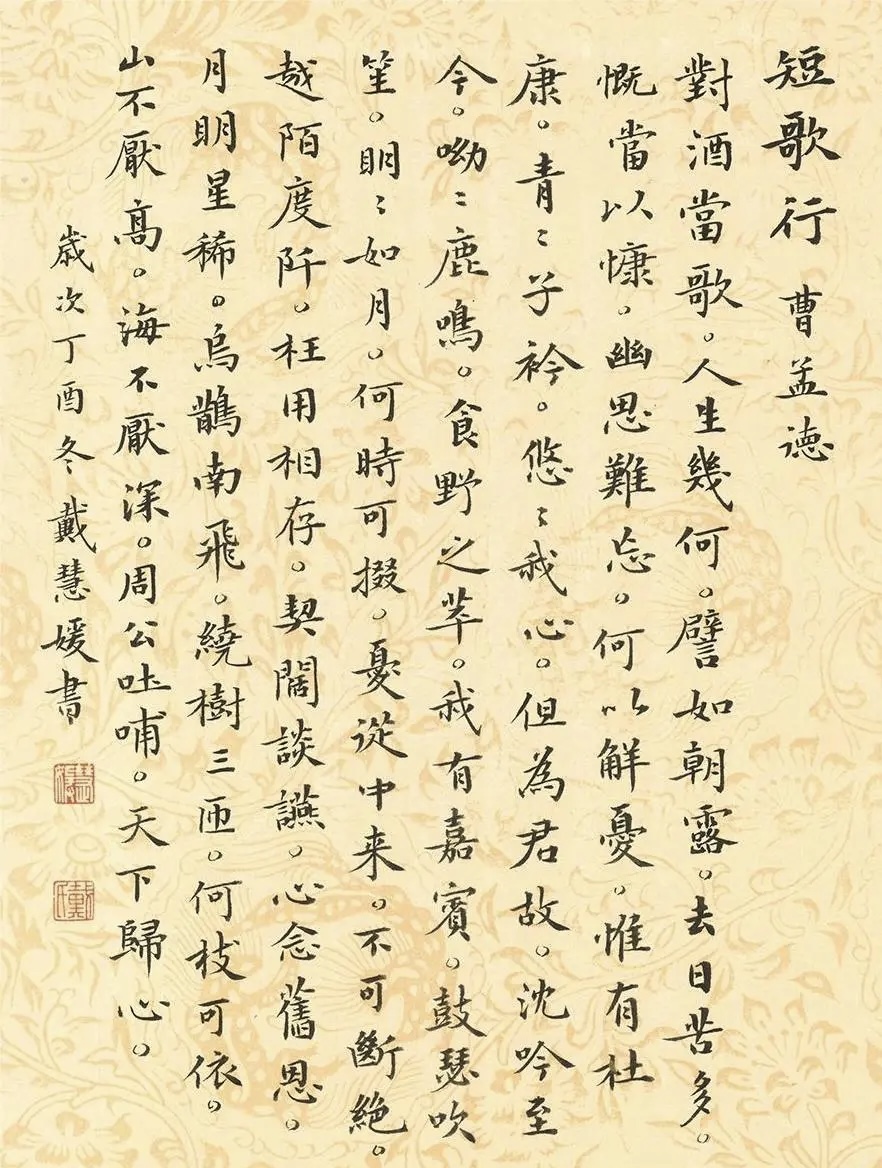 短歌行 曹孟德
對酒當歌。人生幾何。譬如朝露。去日苦多。
慨當以慷。幽思難忘。何以解憂。惟有杜
康。青〻子衿。悠〻我心。但為君故。沈吟至
今。呦〻鹿鳴。食野之苹。我有嘉賓。鼓瑟吹
笙。明〻如月。何時可掇。憂從中来。不可斷絶。
越陌度阡。枉用相存。契闊談讌。心念舊恩。
月明星稀。烏鵲南飛。繞樹三匝。何枝可依。
山不厭髙。海不厭深。周公吐哺。天下歸心。
歲次丁酉冬戴慧媛書